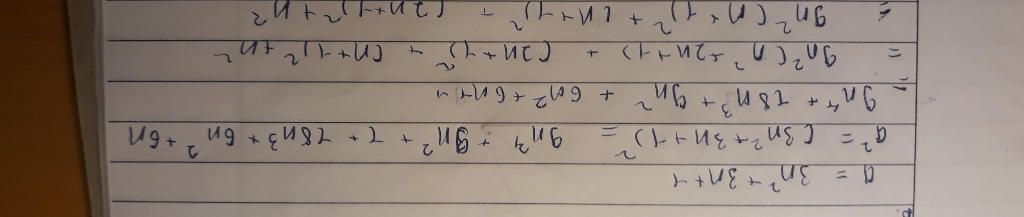 a = 3n²+3n+1
a² = (3n²+3n+1)² = 9n⁴ + 9n² + 1 + 18n³ + 6n² + 6n
= 9n⁴ + 18n³ + 9n² + 6n²+6n+1
= 9n²(n²+2n+1) + (2n+1)² + (n+1)²+n²
= 9n²(n+1)² + (n+1)² + (2n+1)²+n²